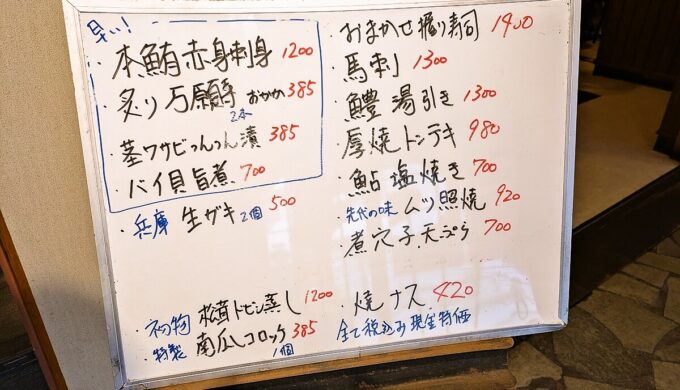 早い!
・本鮪赤身刺身 1200
・炙り万願寺 おかか 385
2本
・茎ワサビつんつん漬 385
・バイ貝旨煮 700
・兵庫 生ガキ 2個 500
・初物 松茸ドビン蒸し 1200
・特製 南瓜コロッケ 385
1個
・おまかせ握り寿司 1400
・馬刺 1300
・鱧湯引き 1300
・厚焼トンテキ 980
・鮎塩焼き 700
・先代の味 ムツ照焼 920
・煮穴子天ぷら 700
・焼ナス 420
全て税込み現金特価